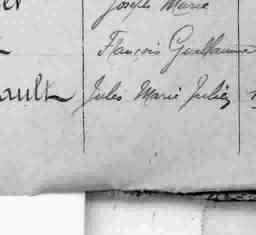 Joseph Marie
François Guillaume
ault Jules Marie Julien